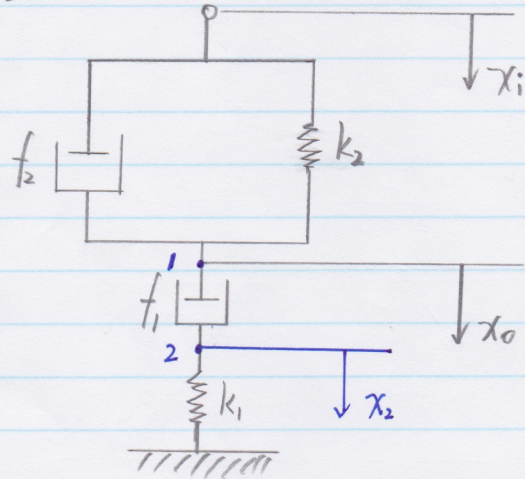 xi
f2
k2
1
f1
xo
2
k1
x2